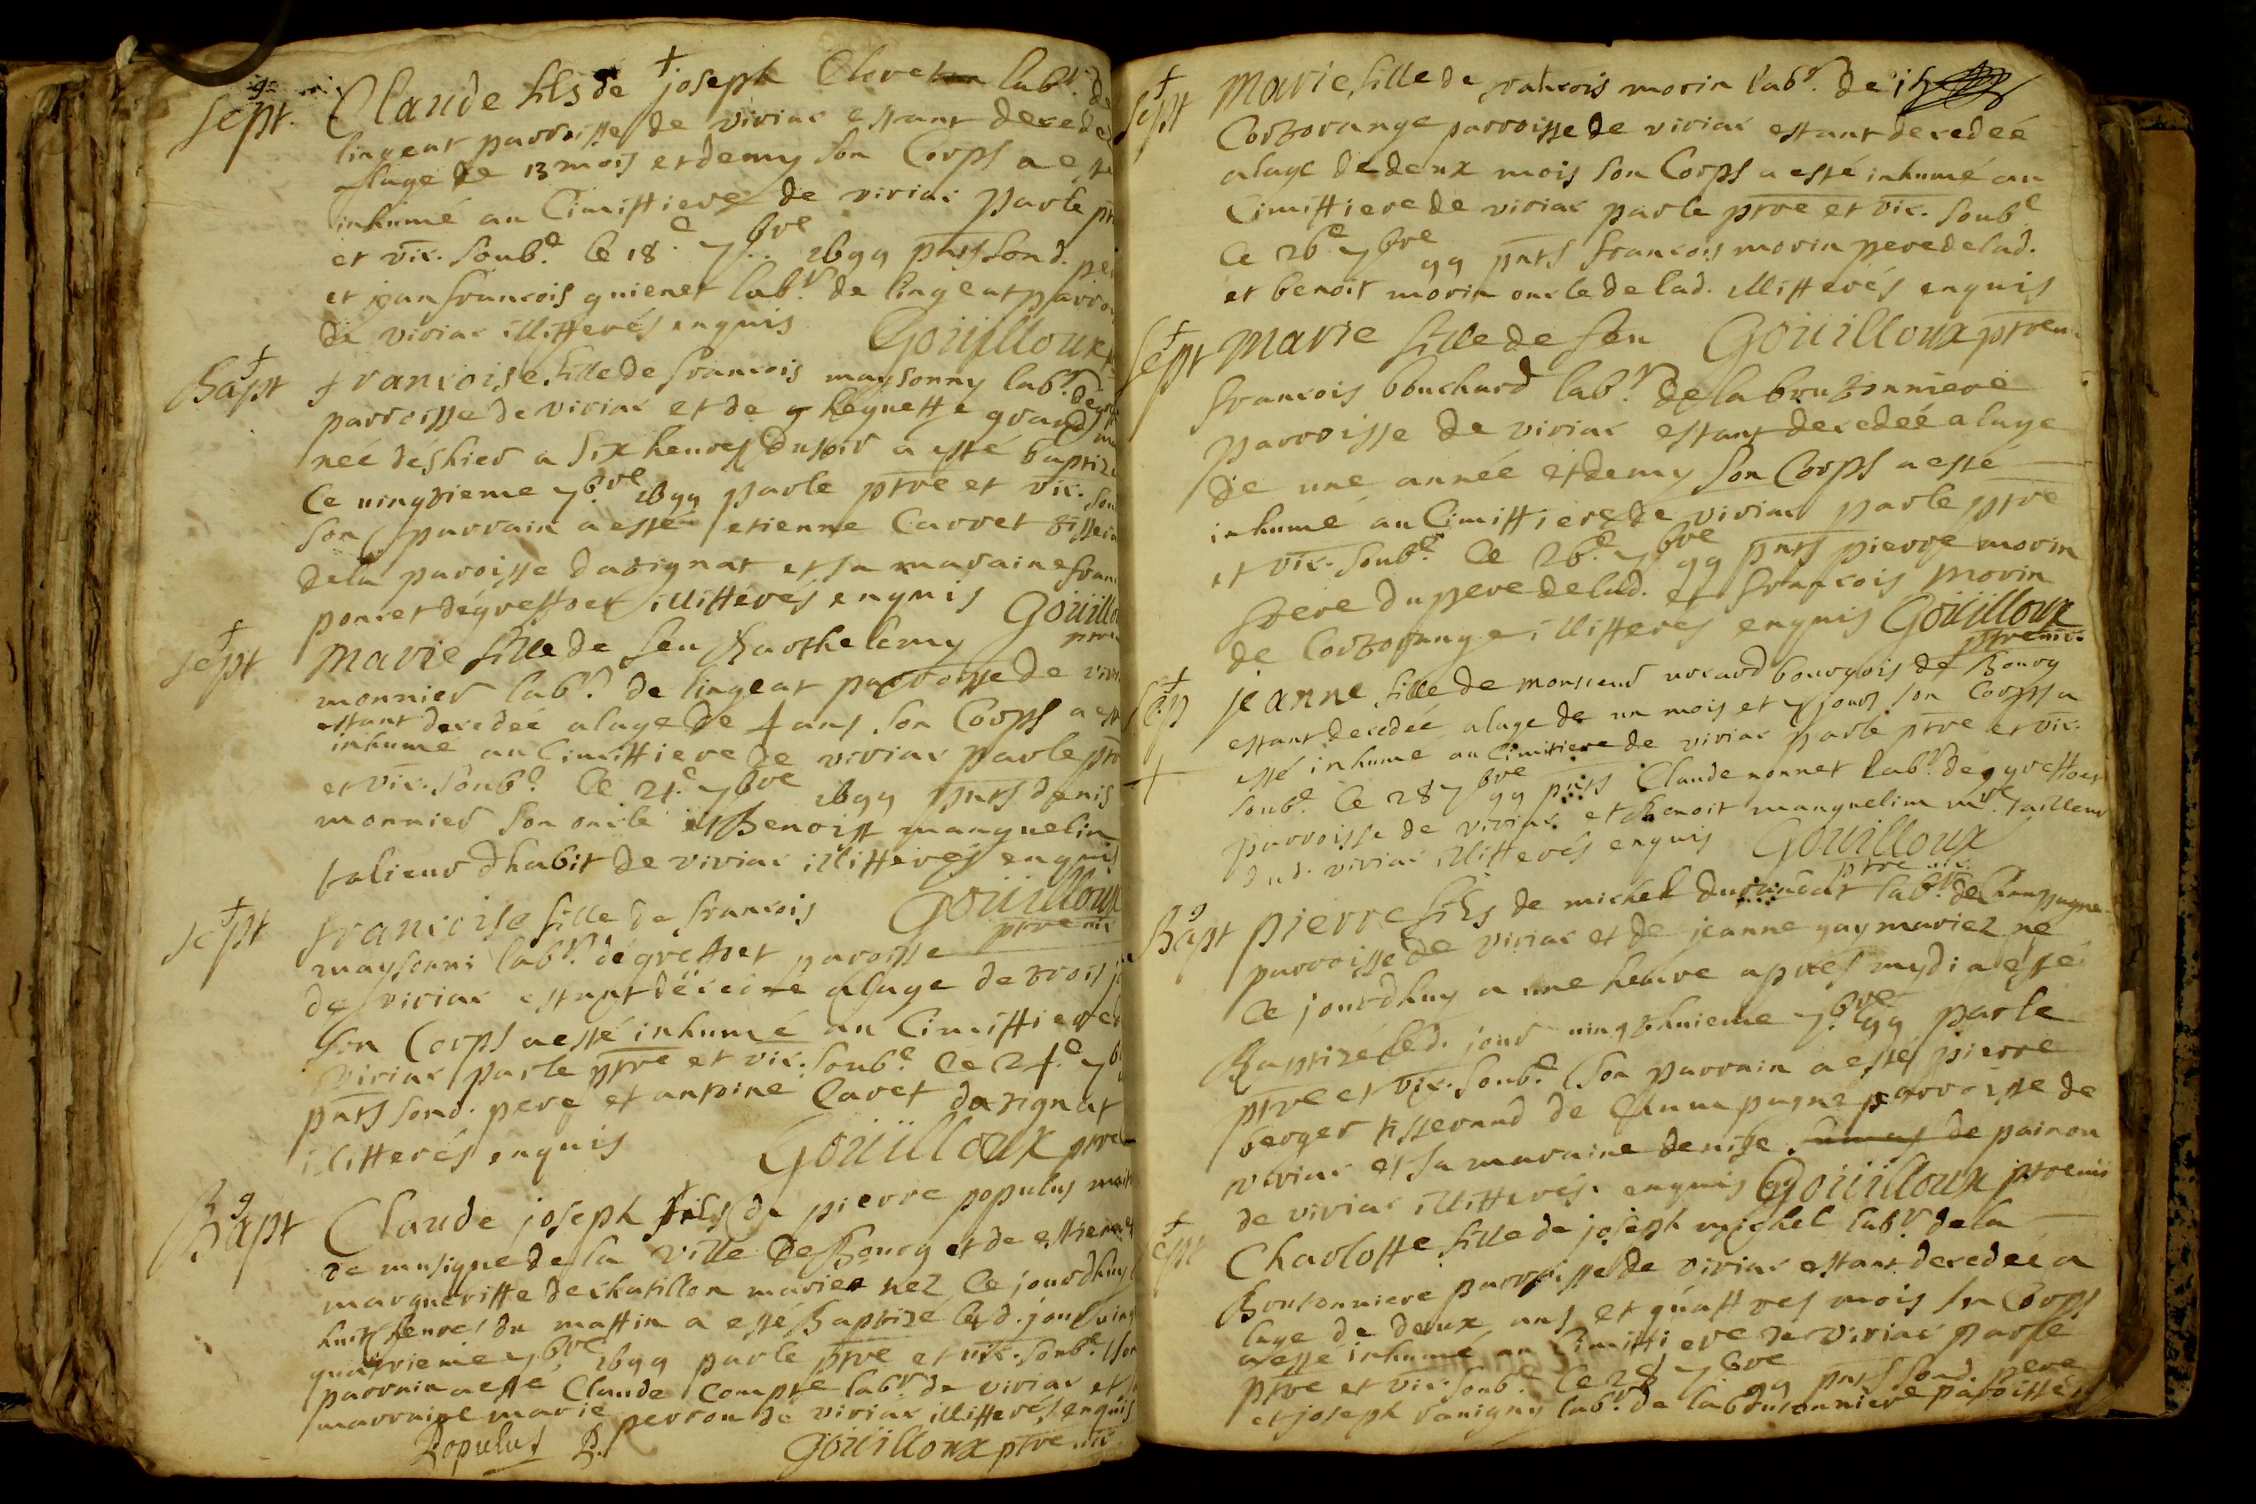 Sept. Claude fils de joseph Cleret labr. de
lingeat parroisse de viriac estant decedé
a lage de 13 mois et demy son Corps a esté
inhumé au Cimittiere de viriac par le ptre
et vic. soubé. le 18e 7bre 1699 pnts sond. pere
et jean francois guienet labr. de lingeat parroi
de viriac illitterés enquis Goüilloux
Bapt francoise fille de francois maysonny labr.
parroisse de viriac et de grand
neé deshier a six heures du soir a esté baptizé
Ce vingtieme 7bre 1699 par le ptre et vic. soub
son parrain a esté etienne Carret tisse
de la paroisse dazignat et sa maraine fran
poncet dégreffoet illitterés enquis Goüillo
Sept Marie fille de feu Barthelemy
monnier labr. de lingeat parroisse de viri
estant decedeé a lage de 4 ans son Corps a est
inhumé au Cimittiere de viriac par le ptre
et vic. soubé. Ce 21.e 7bre 1699 pnts denis
monnier son oncle et Benoist manguelin
talieur dhabit de viriac illitterés enquis
Goüilloux
ptre vic
Sept francoise fille de francois
maysonni labr. dégreffoet paroisse
de viriac estant decedé a lage de trois j
son Corps a esté inhumé au Cimittiere de
viriac par le ptre et vic. soubé. Ce 24.e 7b
pnts sond. pere et antoine Caret dazignat
illitterés enquis Goüilloux ptre
Bapt Claude joseph fils de pierre populus mait
re musique de la ville de Bourg et de estien
margueritte de chatillon mariez nez Ce jourdhuy
huit heures du mattin a esté Baptizé led. jour ving
quatrieme 7bre 1699 par le ptre et vic. soubé. son
parrain a esté Claude Compte labr. de viriac et
marraine marie perron de viriac illitterés enquis
Populus Goüilloux ptre vic
Sept Marie fille de francois morin labr. de
Corzorange parroisse de viriac estant decedeé
a lage de deux mois son Corps a esté inhumé au
Cimittiere de viriac par le ptre et vic. soubé
Ce 26e 7bre 99 pnts francois morin pere de lad.
et benoit morin oncle de lad. illitterés enquis
Sept Marie fille de feu Goüilloux ptre
francois bouchard labr. de la bruzonniere
parroisse de viriac estant decedeé a lage
de une année et demy son Corps a esté
inhumé au Cimittiere de viriac par le ptre
et vic. soubé. Ce 26.e 7bre 99 pnts pierre morin
frere du pere de lad. et francois Morin
de Corzorange illitterés enquis Goüilloux
ptre vic.
Sep jeanne fille de monsieur bourgois de Bourg
estant decedeé a lage de un mois et 7 jours son Corps a
esté inhumé au Cimitiere de viriac par le ptre et vic.
soubé. Ce 28 7bre 99 pnts Claude nonnet labr. de greffoet
parroisse de viriac et Benoit manguelin mre. tailleur
dud. viriac illitterés enquis Goüilloux
ptre vic
Bapt pierre fils de michel labr. de Champagne
parroisse de viriac et de jeanne gay mariez ne
Ce jourdhuy a une heure apres mydi a esté
Baptizé led. jour vingt huitieme 7bre 99 par le
ptre et vic. soubé. son parrain a esté pierre
berger tisserand de Champagne parroisse de
viriac et sa maraine denise de painon
de viriac illitterés enquis Goüilloux ptre vic
Sept Charlotte fille de joseph michel labr. de la
Boutonniere parroisse de viriac estant decedeé a
lage de deux ans et quattres mois son Corps
a esté inhumé au Cimittiere de viriac par le
ptre et vic. soubé. Ce 28 7bre 99 pnts sond. pere
et joseph ravigny labr. de la paroisse